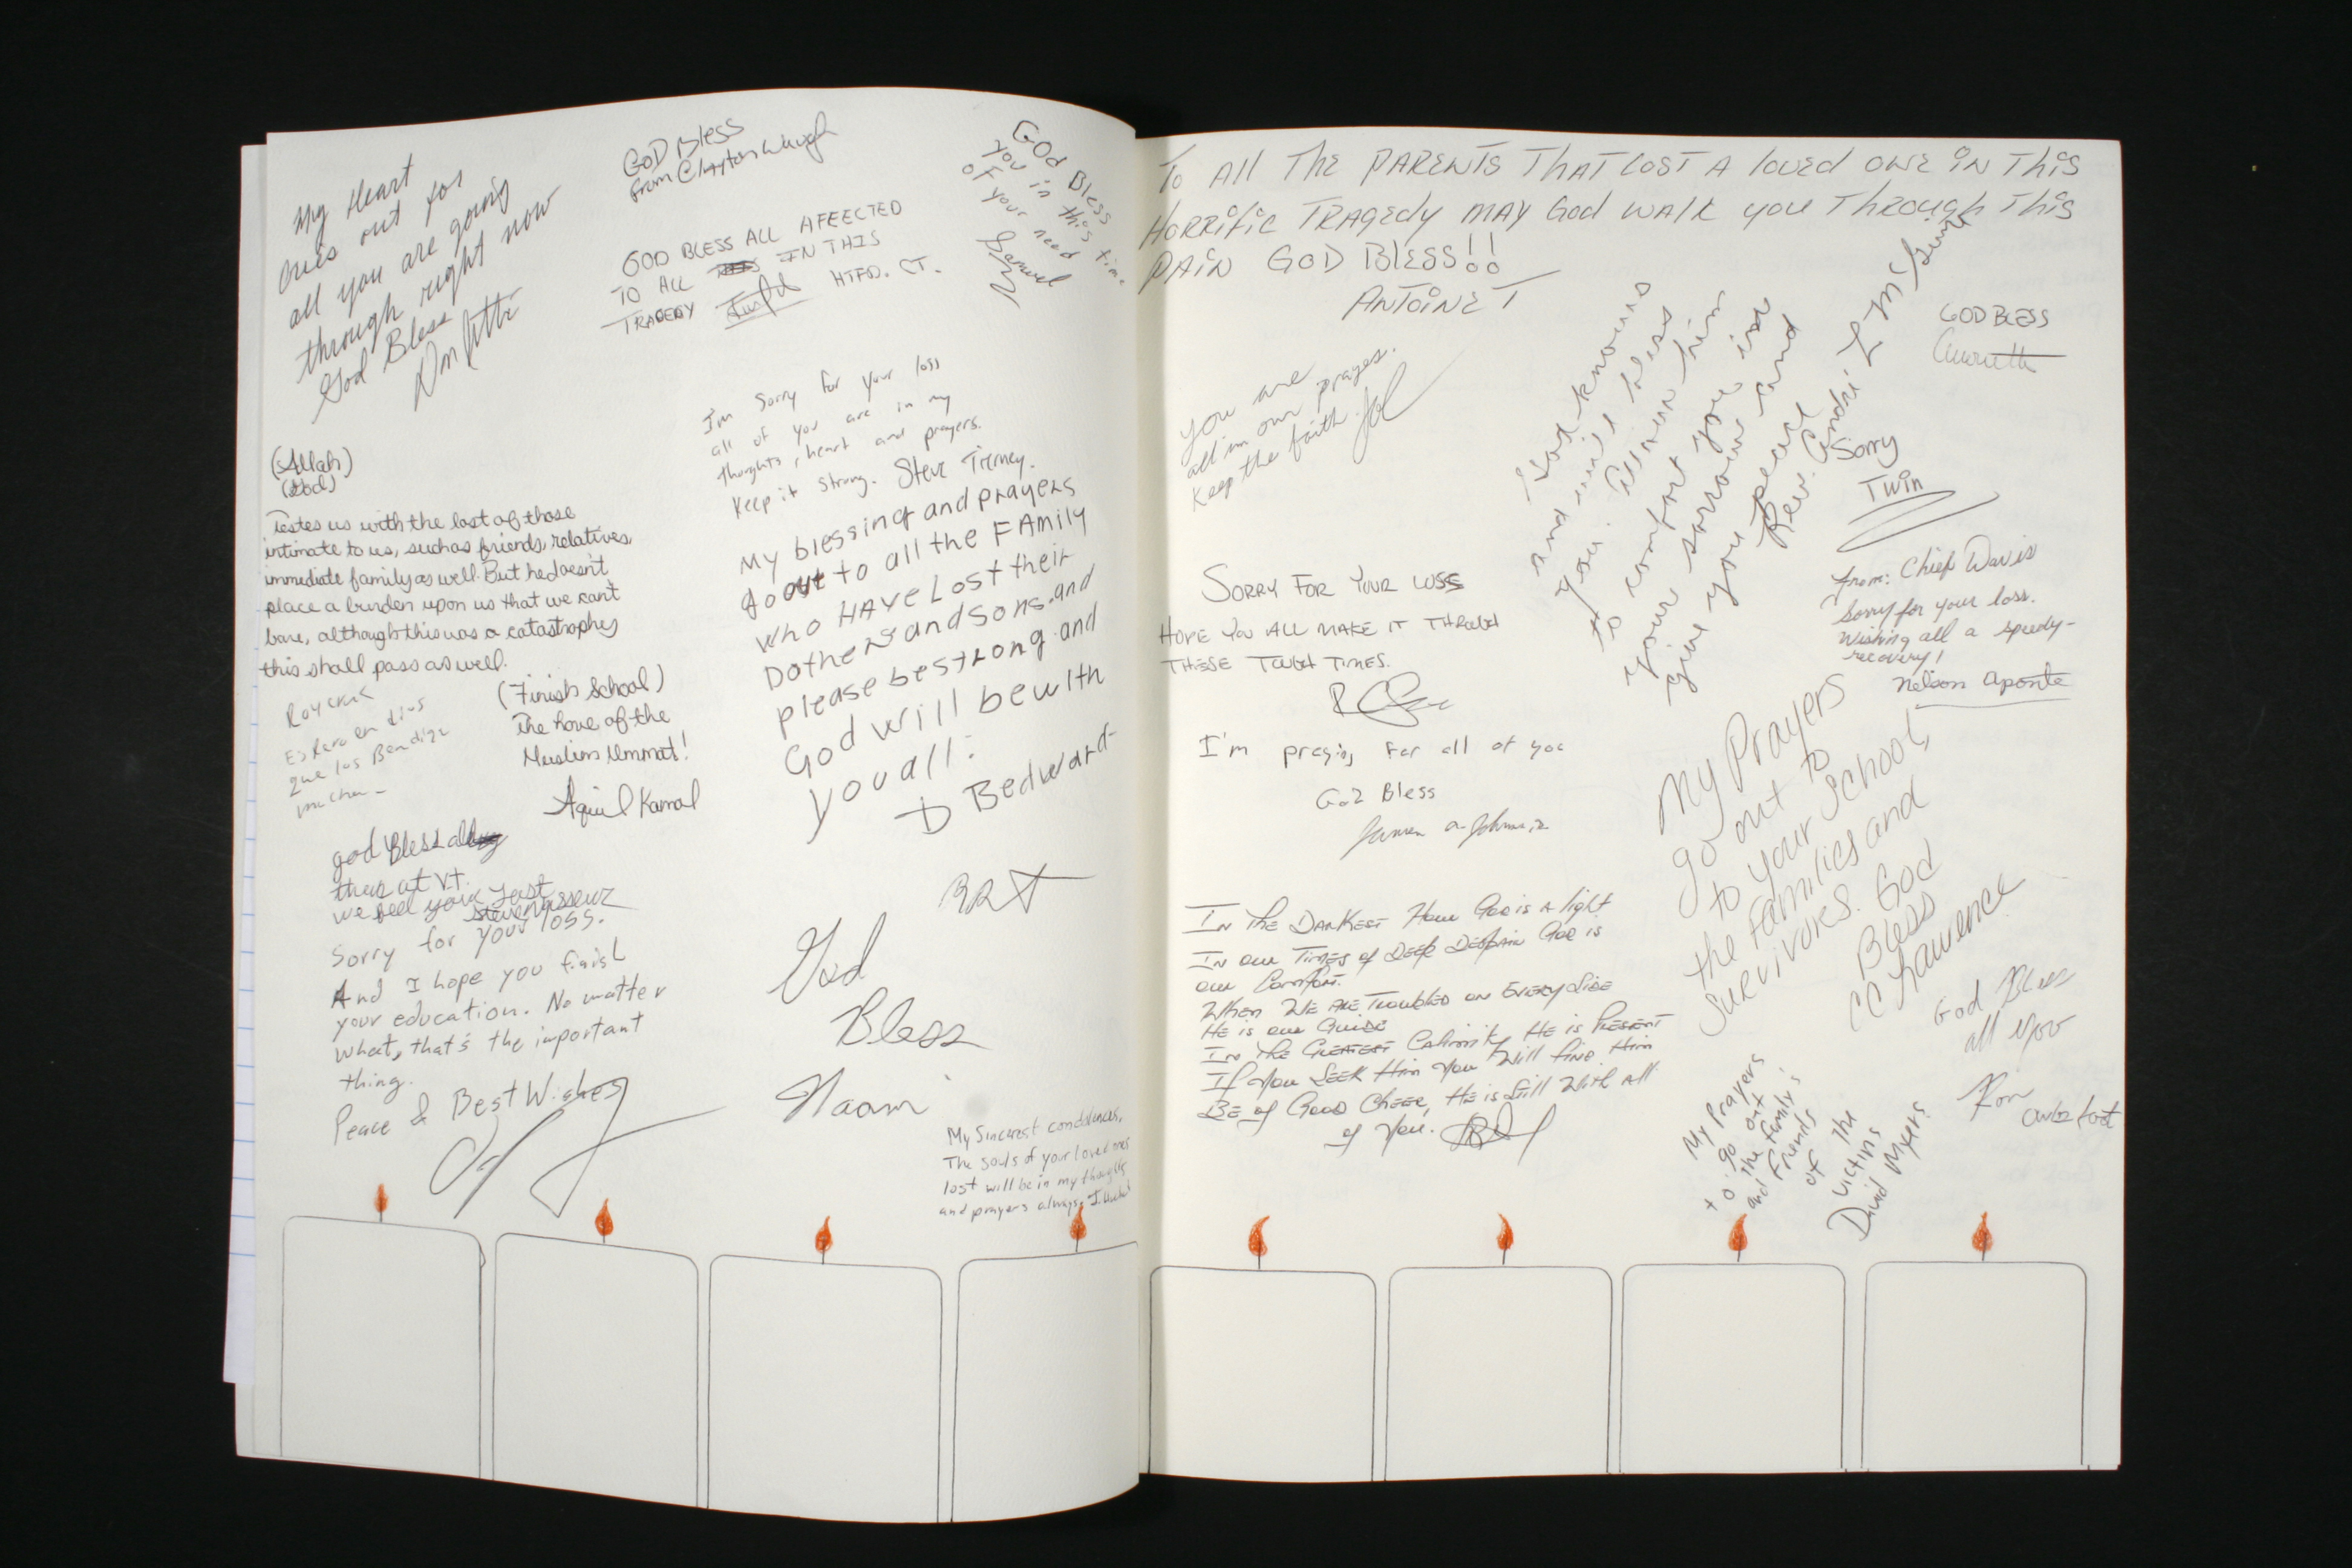 My Heart
out for
all you are going
through right now
God Bless
GOD Bless
from Clayton Waugh
GOD BLESS ALL AFEECTED
TO ALL IN THIS
TRAGEDY HTFD. CT.
GOd Bless
you in this time
of your need
Samuel
I'm Sorry for your loss
all of you are in my
thoughts, heart and prayers.
Keep it Strong. Steve Tierney.
(Allah)
(God)
Testes us with the lost of those
intimate to us, such as friends, relatives,
immediate family as well. But he doesn't
place a burden upon us that we can't
bare, although this was a catastrophey
this shall pass as well.
(Finish School)
The love of the
Muslim Ummat!
Aquil Kamal
Roy cruz
Espero en dios
que los Bendiga
mucho
My blessing and prayers
go out to all the FAMily
who HAve Lost their
Dothers and sons. and
please be strong. and
God will be with
you all:
D Bedward
god Bless all
thus at V.t.
we feel your
Sorry for your loss.
And I hope you finish
your education. No matter
what, that's the important
thing.
Peace & Best Wishes
God
Bless
Naomi
My Sincerest condolences,
The souls of your loved ones
lost will be in my thoughts
and prayers always.
To All The PARENTS THAT LOST A loved ONE iN This
HORRific TRAGEdy MAY God WALK you THROUGH This
PAiN GOD BLESS!!
ANTOiNE T
you are
all in our prayers.
Keep the faith.
God knows
and will bless
you. Allow him
to comfort you in
your sorrow and
give you peace
Rev. Andre L. M
GOD BLESS
Sorry
Twin
From: Chief Davis
Sorry for your loss.
Wishing all a speedy-
recovery!
Nelson Aponte
SORRY FOR YOUR LOSS
HOPE YOU ALL MAKE IT THROUGH
THESE TOUGH TIMES.
I'm praying for all of you
God Bless
My Prayers
go out to
to your School,
the families and
Survivors. God
Bless
CC Lawrence
In The DARKEST Hour God is A light
In our Times of DEEP DESPAIR God is
our Comfort.
When WE ARE TROUBLED on EVERY Side
HE is our GUIDE
In The GREATEST Calimity HE is PRESENT
If You SEEK Him You Will find Him
BE of Good CHEER, HE is Still With All
of You.
God Bless
all you
Ron
My Prayers
go out
to the family's
and Friends
of the
victims
David Myers